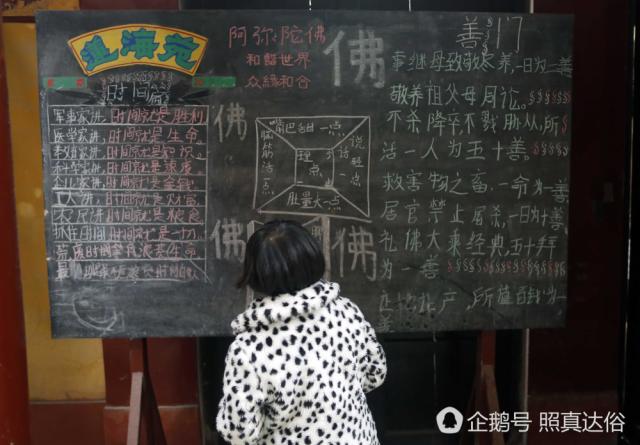 海苑
时间
军事家讲,时间就是胜利
医学家讲,时间就是生命。
教育家讲,时间就是知识。
科学家讲,时间就是速度。
企业家讲,时间就是金钱
讲,时间就是财富
农民讲,时间就是粮食
抓住时间,时间就是一切
荒废时间等于浪费生命
阿弥陀佛
和谐世界
众缘和合
佛
佛
佛
佛
嘴巴甜一点
脑筋活一点
理
点
说话轻一点
肚量大一点
善门
事继母致敬尽养,一日为一善
敬养祖父母同论。
不杀降卒不戮胁从,所
活一人为五十善。
救害物之畜,一命为一善
居官禁止屠杀,一日为十善
礼佛大乘经典,五十拜
为一善
产,所值百钱为一
企鹅号 照真达俗